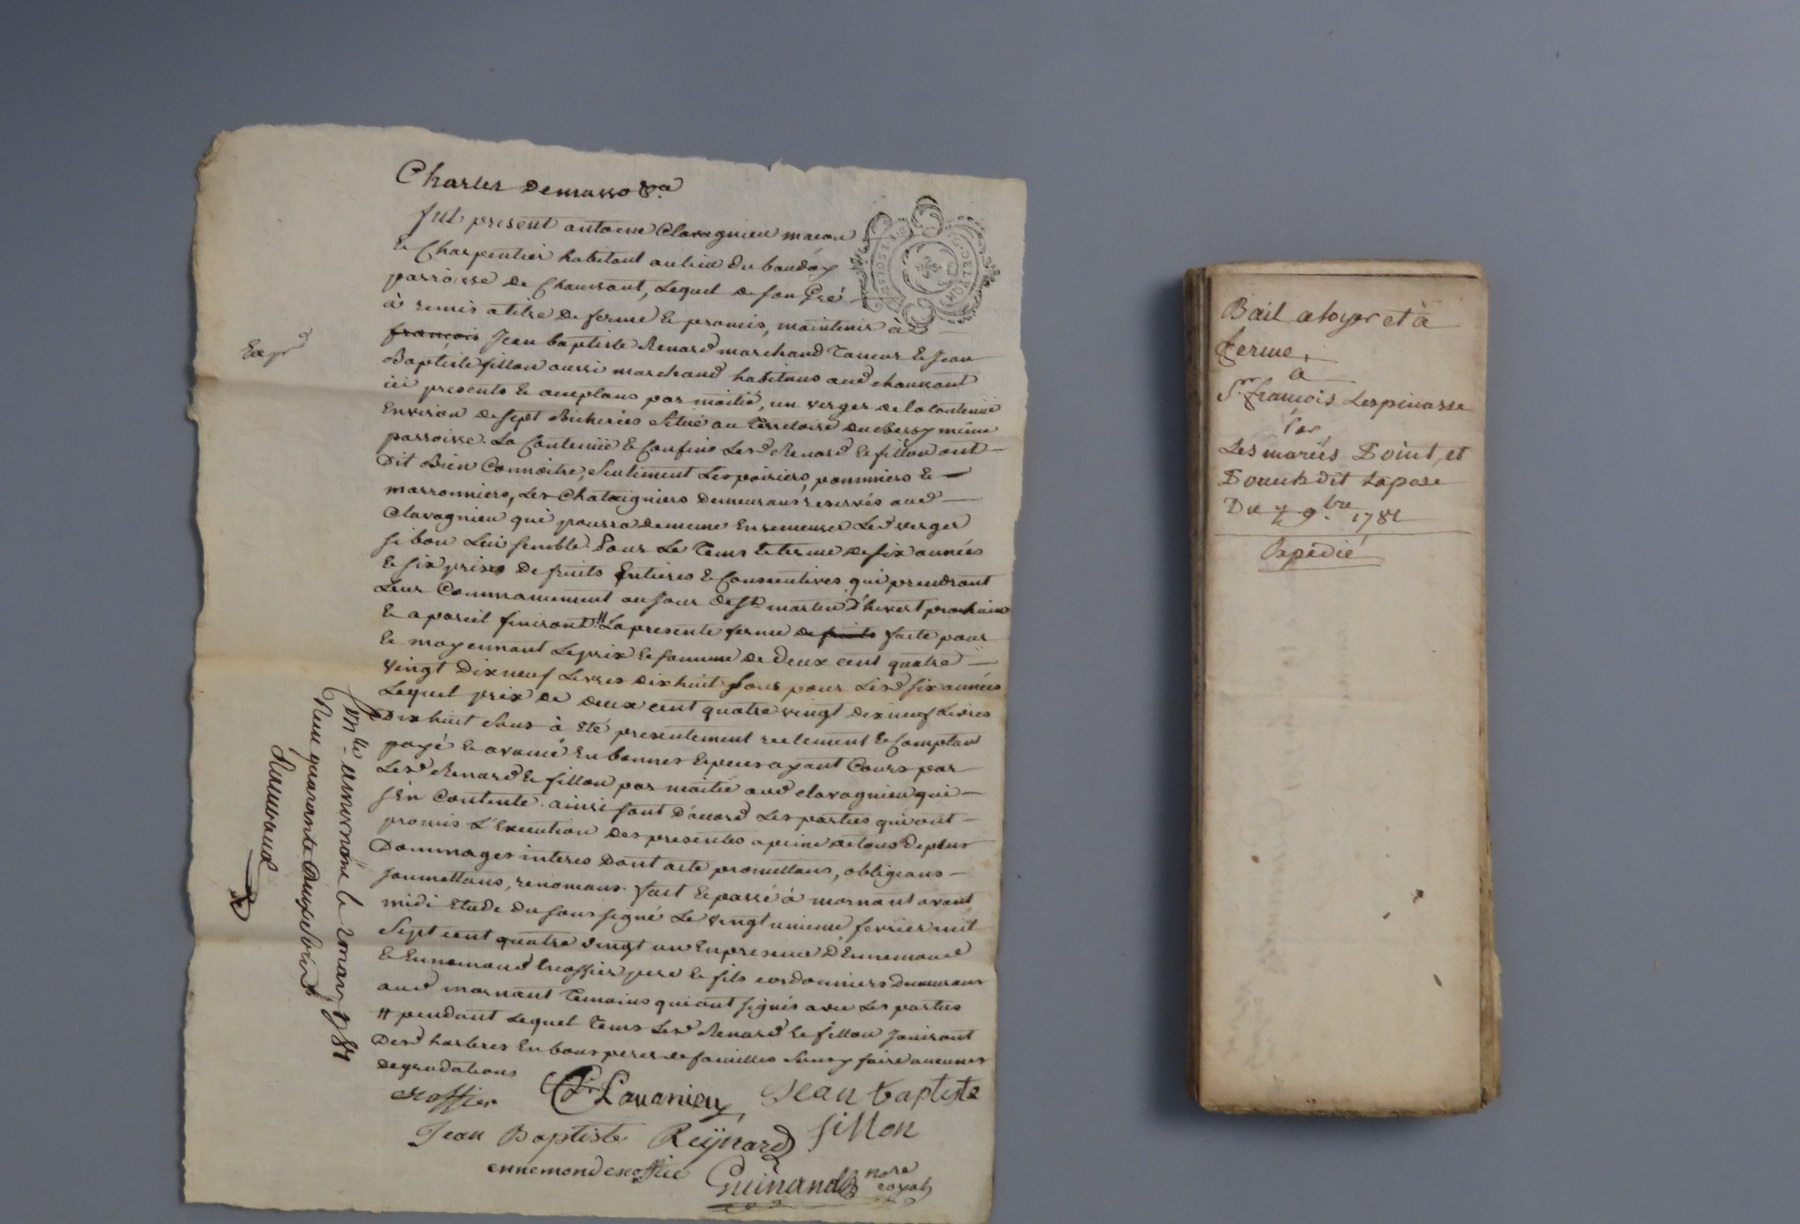 Charles Demasso &.a
fut present antoine Clavagnieu macon
& Charpentier habitant au lieu du
parroisse de Chaussant, Lequel de son Gré
à remis a titre De ferme & promis, maintenir à
françois Jean baptiste Renard marchand Taneur & Jean
Baptiste fillon aussi marchand habitans aud chaussant
ici presents & acceptans par moitié, un verger de la contenüe
Environ de sept Bicherées Situé au Territoire du même
parroisse. La Contenüe & Confins Lesd Renard & fillon ont
Dit Bien Connoitre, Seulement Les poiriers, pommiers &
marronniers, Les Chataigniers demeurans reservés aud
Clavagnieu qui pourra de meme Ensemencer Led verger
si bon Lui semble. Pour Le Tems & terme de six années
& six prises De fruits Entieres & Consecutives qui prendront
Leur Commancement au Jour de St martin D'hivert prochain
& a pareil finiront # La presente ferme de fruits faite pour
& moyennant Le prix & somme de Deux cent quatre
vingt Dixneuf Livres dixhuit sous pour Lesd six années
Lequel prix de deux cent quatre vingt dixneuf Livres
Dix huit sous à Eté presentement reelement & Comptant
payé & avancé En bonnes Especes ayant Cours par
Lesd Renard & fillon par moitié aud clavagnieu qui
s'En Contente. ainsi sont D'accord Les parties qui ont
promis L'Execution des presentes a peine de tous Depens
Dommages interes Dont acte promettans, obligeans
soumettans, renonceans. fait & passé à mornant avant
midi Etude du sous signé Le vingt unieme fevrier mil
Sept cent quatre vingt un En presence D'Ennemond
& Ennemond Escoffier pere & fils cordonniers Demeurans
aud mornant Temoins qui ont signés avec Les parties
# pendant Lequel Tems Lesd Renard & fillon Jouiront
Desd harbres En bons peres de familles Sans y faire aucunes
degradations
escoffier Clavanieu Jean baptiste
Jean Baptiste Reÿnard fillon
ennemond escoffie
Guinand nore
royal
Exp d
Con.lle a mornant le 2 mars 1781
Reçu quarante deux sols
Raimbaud
Bail a loyer et à
ferme,
a
Sr. françois Lespinasse
Par
Les mariés Point, et
Du 7 9.bre 1781
Expédié